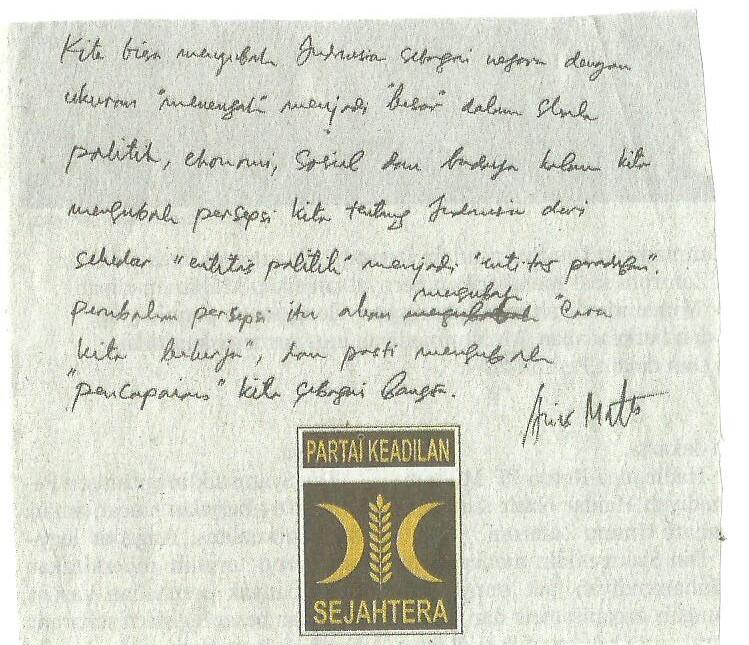 Kita bisa mengubah Indonesia sebagai negara dengan
ukuran "menengah" menjadi "besar" dalam skala
politik, ekonomi, sosial dan budaya kalau kita
mengubah persepsi kita tentang Indonesia dari
sekedar "entitas politik" menjadi "entitas peradaban".
perubahan persepsi itu akan mengubah "cara
kita bekerja", dan pasti mengubah
"pencapaian" kita sebagai bangsa.
Anis Matta
PARTAI KEADILAN
SEJAHTERA